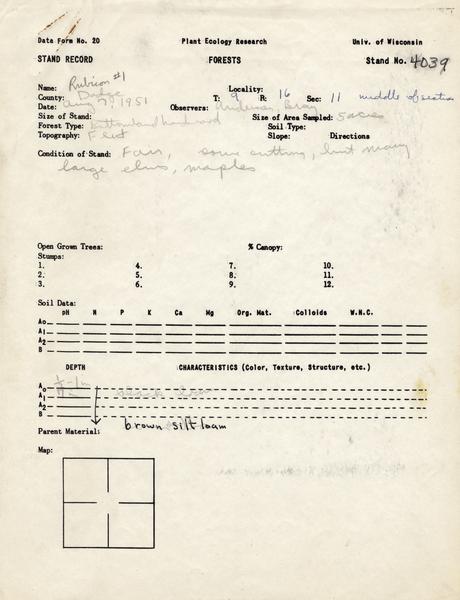 Data Form No. 20 Plant Ecology Research Univ. of Wisconsin
STAND RECORD FORESTS Stand No. 4039
Name: Rubicon #1 Locality:
County: Dodge T: 9 R: 16 Sec: 11 middle of section
Date: Aug 7, 1951 Observers: Anderson, Bray
Size of Stand: Size of Area Sampled: 5 acres
Forest Type: Bottomland hardwood Soil Type:
Topography: Flat Slope: Directions
Condition of Stand: Fair, some cutting, but many
large elms, maples
Open Grown Trees: % Canopy:
Stumps:
1. 4. 7. 10.
2. 5. 8. 11.
3. 6. 9. 12.
Soil Data:
pH N P K Ca Mg Org. Mat. Colloids W.H.C.
A₀
A₁
A₂
B
DEPTH CHARACTERISTICS (Color, Texture, Structure, etc.)
A₀
A₁ black
A₂
B
brown silt loam
Parent Material:
Map: